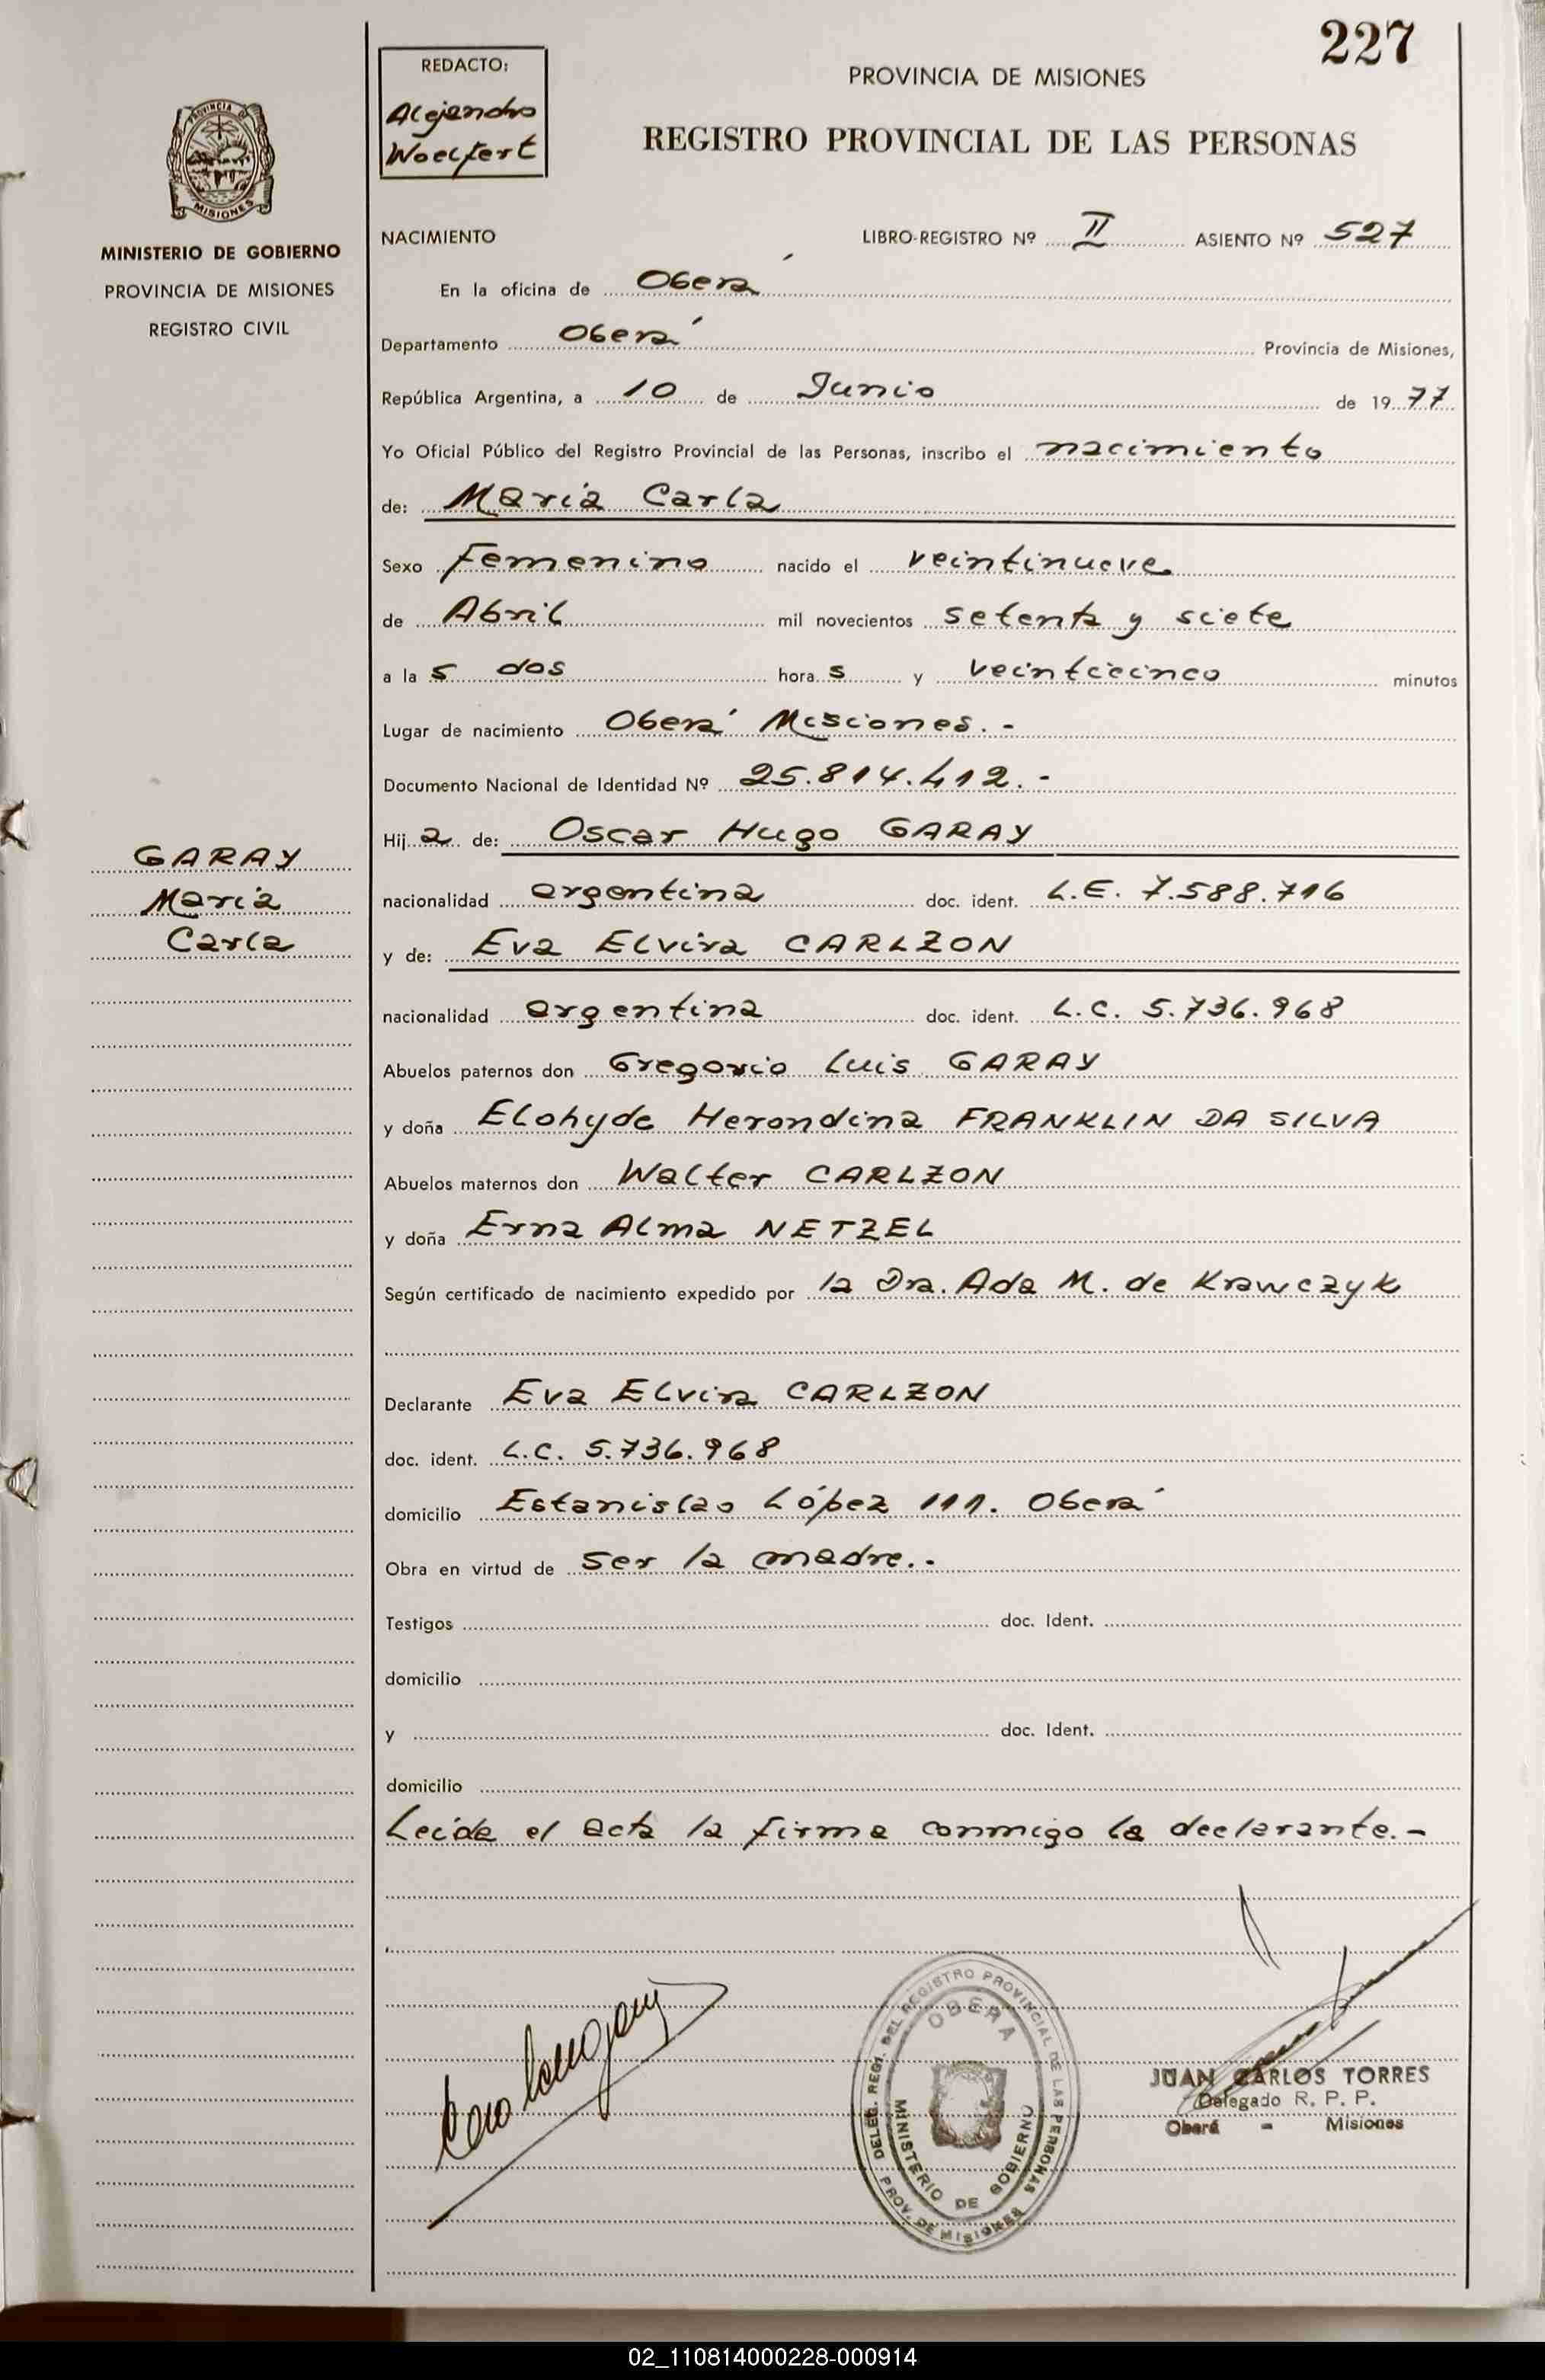 227
REDACTO:
Alejandro
Woelfert
PROVINCIA DE MISIONES
REGISTRO PROVINCIAL DE LAS PERSONAS
PROVINCIA DE
MISIONES
MINISTERIO DE GOBIERNO
PROVINCIA DE MISIONES
REGISTRO CIVIL
NACIMIENTO LIBRO-REGISTRO Nº II ASIENTO Nº 527
En la oficina de Oberá
Departamento Oberá Provincia de Misiones,
República Argentina, a 10 de Junio de 1977
Yo Oficial Público del Registro Provincial de las Personas, inscribo el nacimiento
de: María Carla
Sexo Femenino nacido el veintinueve
de Abril mil novecientos setenta y siete
a la s dos hora s y veinticinco minutos
Lugar de nacimiento Oberá Misiones.-
Documento Nacional de Identidad Nº 25.814.412.-
Hij a de: Oscar Hugo GARAY
GARAY
María
Carla
nacionalidad argentina doc. ident. L.E. 7.588.716
y de: Eva Elvira CARLZON
nacionalidad argentina doc. ident. L.C. 5.736.968
Abuelos paternos don Gregorio Luis GARAY
y doña Elohyde Herondina FRANKLIN DA SILVA
Abuelos maternos don Walter CARLZON
y doña Erna Alma NETZEL
Según certificado de nacimiento expedido por la Dra. Ada M. de Krawczyk
Declarante Eva Elvira CARLZON
doc. ident. L.C. 5.736.968
domicilio Estanislao López 111. Oberá
Obra en virtud de ser la madre.-
Testigos doc. Ident.
domicilio
y doc. Ident.
domicilio
Leída el acta la firma conmigo la declarante.-
DELEG. REGI. DEL REGISTRO PROVINCIAL DE LAS PERSONAS
OBERA
MINISTERIO DE GOBIERNO
PROV. DE MISIONES
JUAN CARLOS TORRES
Delegado R. P. P.
Oberá - Misiones
02_110814000228-000914